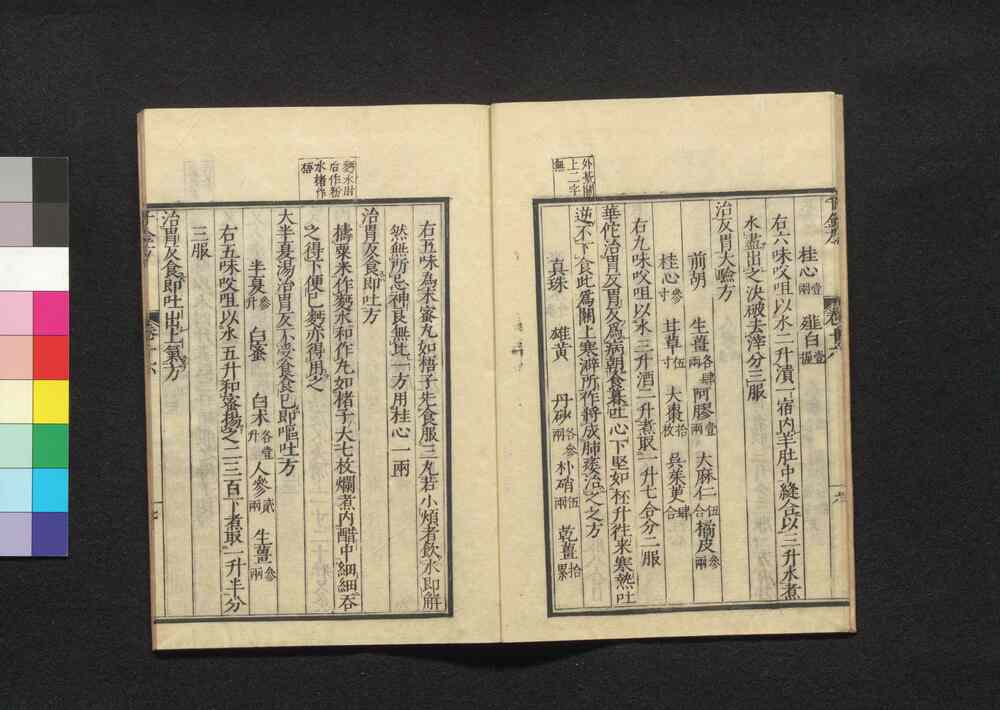 外基關
上二字
無
桂心壹兩 薤白壹握
右六味㕮咀以水二升漬一宿内羊肚中縫合以三升水煮
水盡出之決破去滓分三服
治反胃大驗方
前胡 生薑各肆兩 阿膠壹兩 大麻仁伍合 橘皮參兩
桂心參寸 甘草伍寸 大棗拾枚 吳茱萸肆合
右九味㕮咀以水三升酒二升煮取一升七合分二服
華佗治胃反胃反爲病朝食暮吐心下堅如杯升往来寒熱吐
逆不下食此爲關上寒澼所作將成肺痿治之之方
真珠 雄黄 丹砂各參兩 朴硝伍兩 乾薑拾累
右五味爲末蜜丸如梧子先食服三丸若小煩者飲水即解
然無所忌神良無比一方用桂心一兩
治胃反食即吐方
擣粟米作麪水和作丸如楮子大七枚爛煮内醋中細細吞
之得下便已麪亦得用之
大半夏湯治胃反不受食食已即嘔吐方
半夏參升 白蜜 白朮各壹升 人參貳兩 生薑參兩
右五味㕮咀以水五升和蜜揚之二三百下煮取一升半分
三服
治胃反食即吐出上氣方